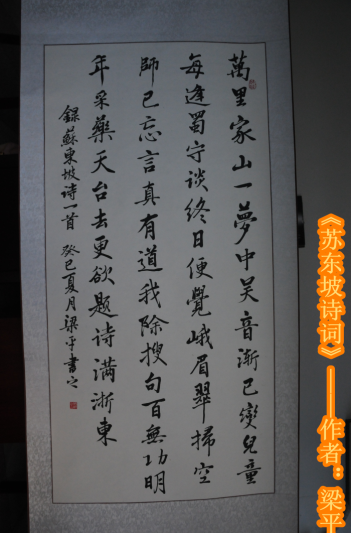 萬里家山一夢中吴音漸已變兒童
每逢蜀守谈終日便覺峨眉翠掃空
師已忘言真有道我除搜句百無功明
年采藥天台去更欲题诗滿浙東
録蘇東坡诗一首 癸巳夏月梁平書之
《苏东坡诗词》——作者：梁平